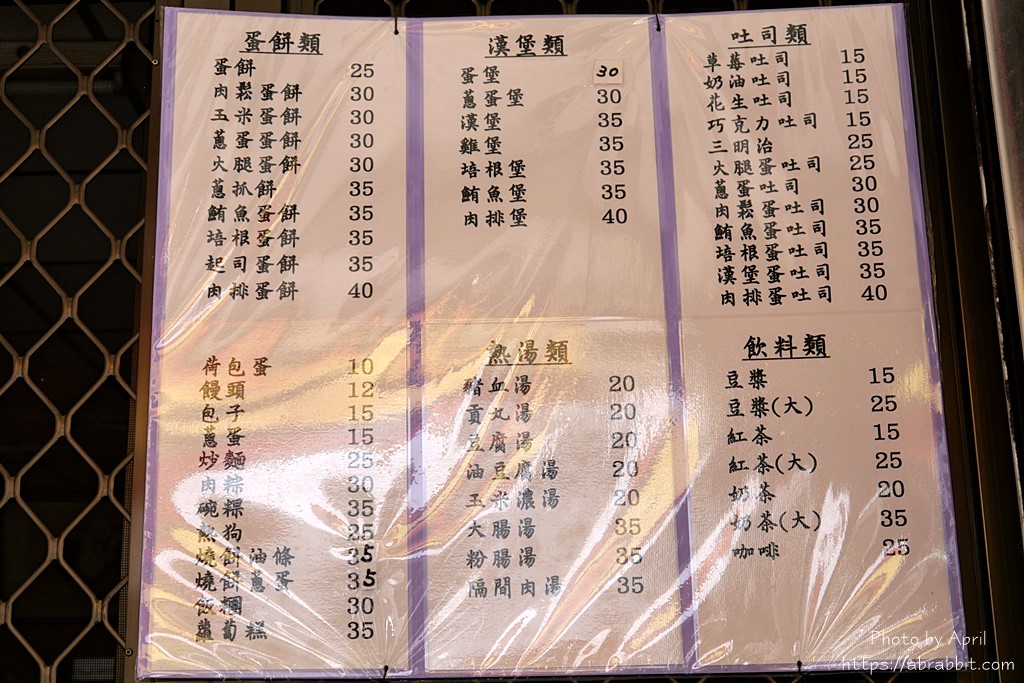 蛋餅類
蛋餅 25
肉鬆蛋餅 30
玉米蛋餅 30
蔥蛋蛋餅 30
火腿蛋餅 30
蔥抓餅 35
鮪魚蛋餅 35
培根蛋餅 35
起司蛋餅 35
肉排蛋餅 40
荷包蛋 10
饅頭 12
包子 15
蔥蛋 15
炒麵 25
肉粽 30
碗粿 35
熱狗 25
燒餅油條 35
燒餅蔥蛋 35
飯糰 30
蘿蔔糕 35
漢堡類
蛋堡 30
蔥蛋堡 30
漢堡 35
雞堡 35
培根堡 35
鮪魚堡 35
肉排堡 40
熱湯類
豬血湯 20
貢丸湯 20
豆腐湯 20
油豆腐湯 20
玉米濃湯 20
大腸湯 35
粉腸湯 35
隔間肉湯 35
吐司類
草莓吐司 15
奶油吐司 15
花生吐司 15
巧克力吐司 15
三明治 25
火腿蛋吐司 25
蔥蛋吐司 30
肉鬆蛋吐司 30
鮪魚蛋吐司 35
培根蛋吐司 35
漢堡蛋吐司 35
肉排蛋吐司 40
飲料類
豆漿 15
豆漿(大) 25
紅茶 15
紅茶(大) 25
奶茶 20
奶茶(大) 35
咖啡 25
Photo by April
https://abrabbit.com